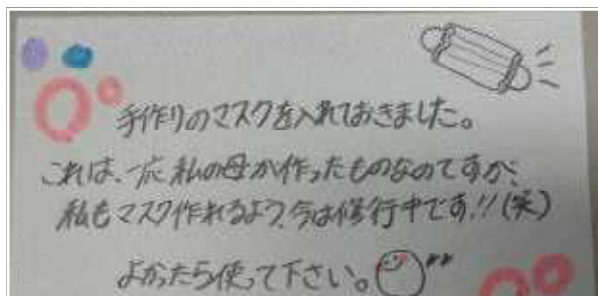 手作りのマスクを入れておきました。
これは、一応 私の母が作ったものなのですが、
私もマスク作れるよう、今は修行中です!!(笑)
よかったら使って下さい。